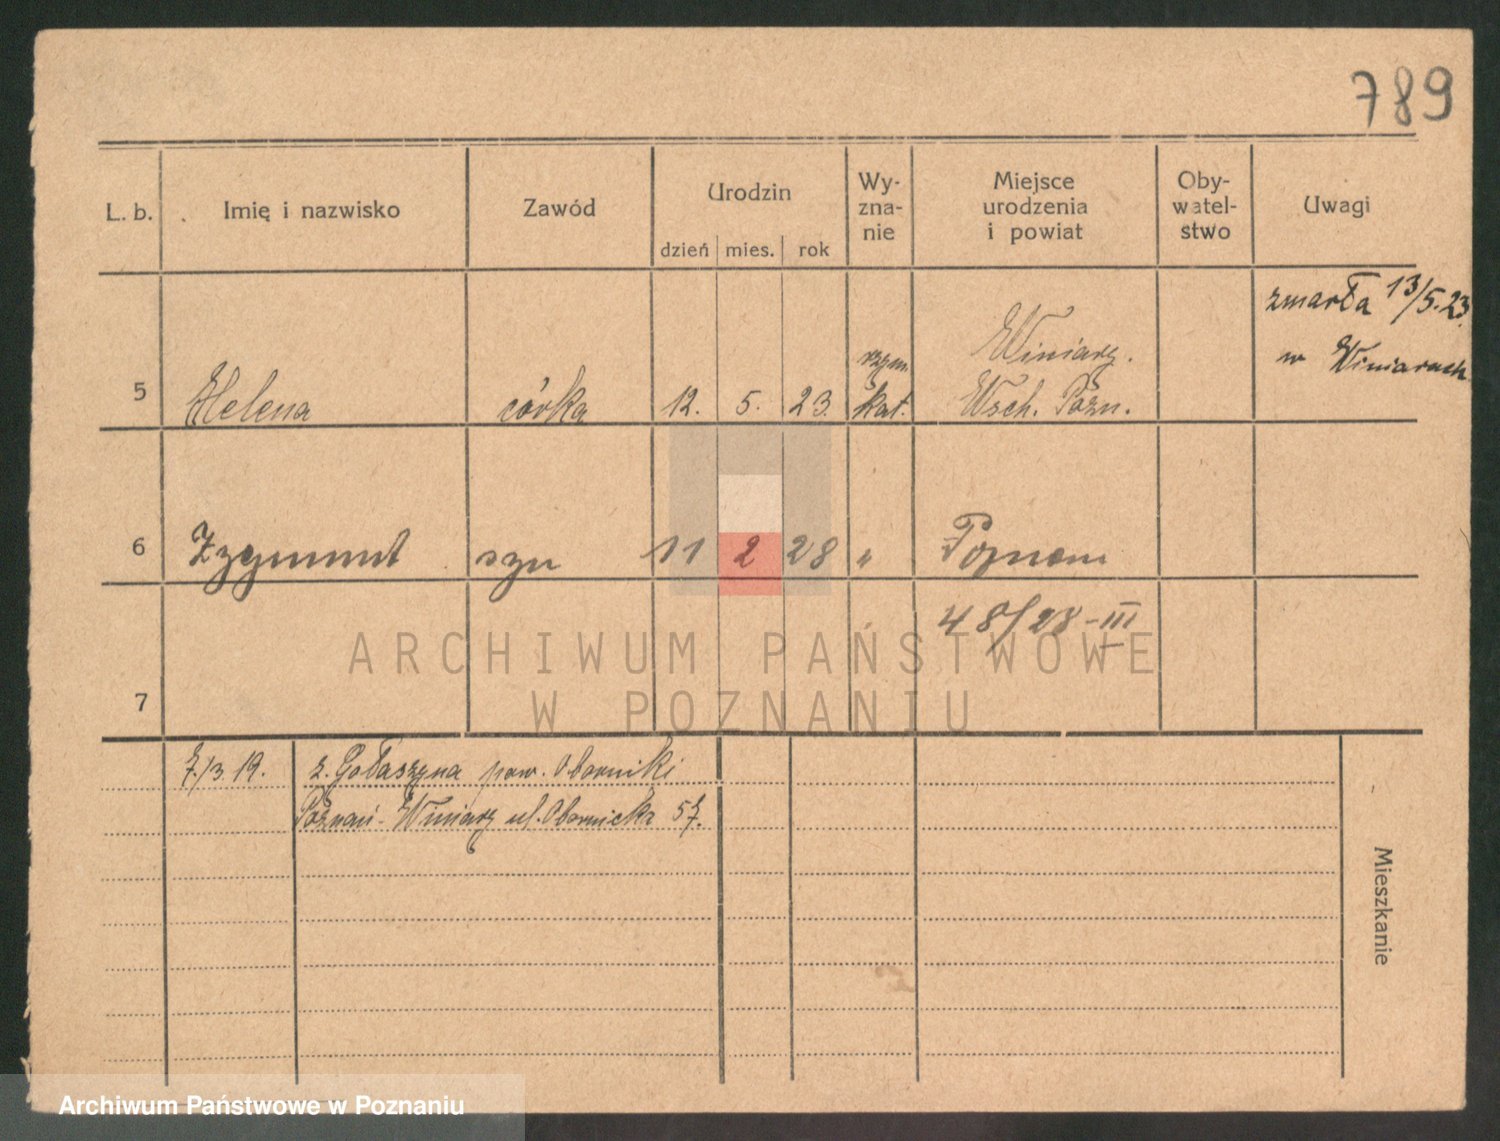 789
L. b. Imię i nazwisko Zawód Urodzin Wy-zna-nie Miejsce urodzenia i powiat Oby-watel-stwo Uwagi
dzień mies. rok
5 Helena córka 12. 5. 23. rzym. kat. Winiary. Wsch. Pozn. zmarła 13/5.23. w Winiarach
6 Zygmunt syn 11 2 28 " Poznań
48/28-III
7
ARCHIWUM PAŃSTWOWE
W POZNANIU
7./3.19. z. Gołaszyna pow. Oborniki
Poznań-Winiary ul. Obornicka 57.
Mieszkanie
Archiwum Państwowe w Poznaniu